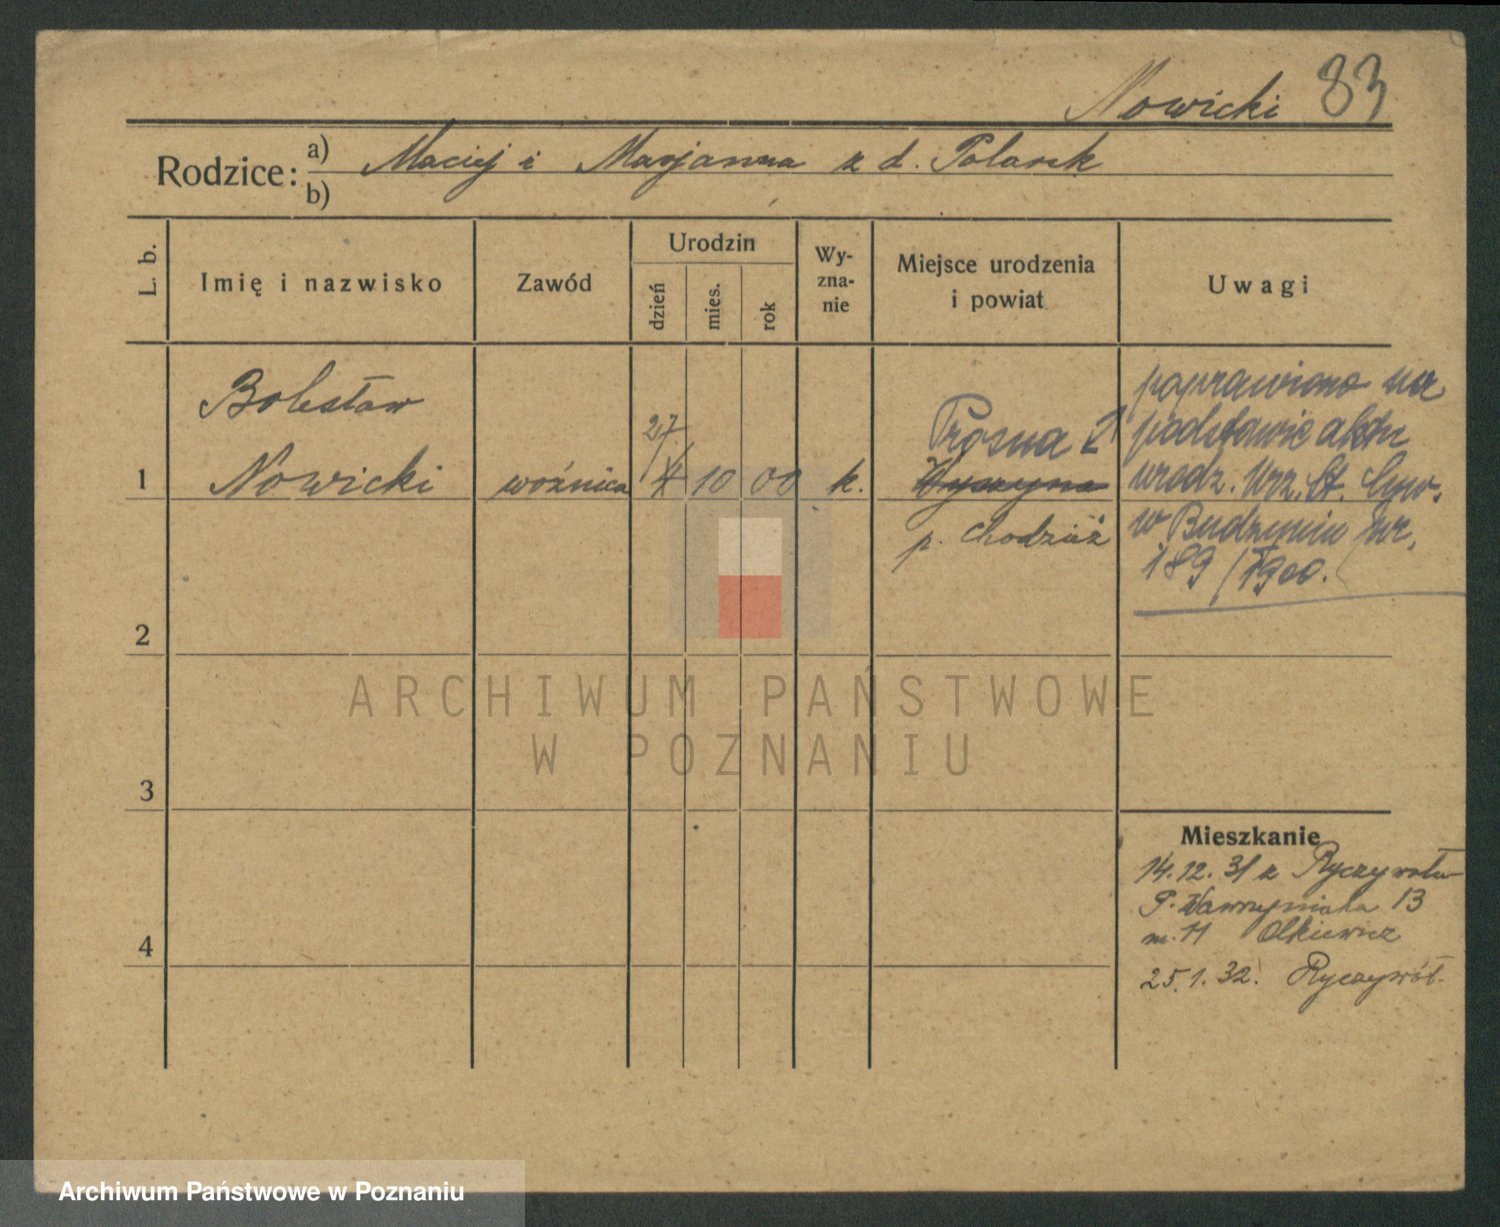 Nowicki 83
Rodzice: a) Maciej i Marjanna z d. Polarek
b)
L. b.
Imię i nazwisko
Zawód
Urodzin
dzień
mies.
rok
Wy-
zna-
nie
Miejsce urodzenia
i powiat
Uwagi
Bolesław
1 Nowicki woźnica 10 00 k.
27
Prosna
Wyszyna
p. Chodzież
poprawiono na
podstawie aktu
urodz. Urz. St. Cyw.
w Budzyniu nr.
189/1900.
2
3
4
Mieszkanie
14.12.31 z Ryczywołu
P. Wawrzyniaka 13
m. 11 Olkiewicz
25.1.32. Ryczywół.
ARCHIWUM PAŃSTWOWE
W POZNANIU
Archiwum Państwowe w Poznaniu